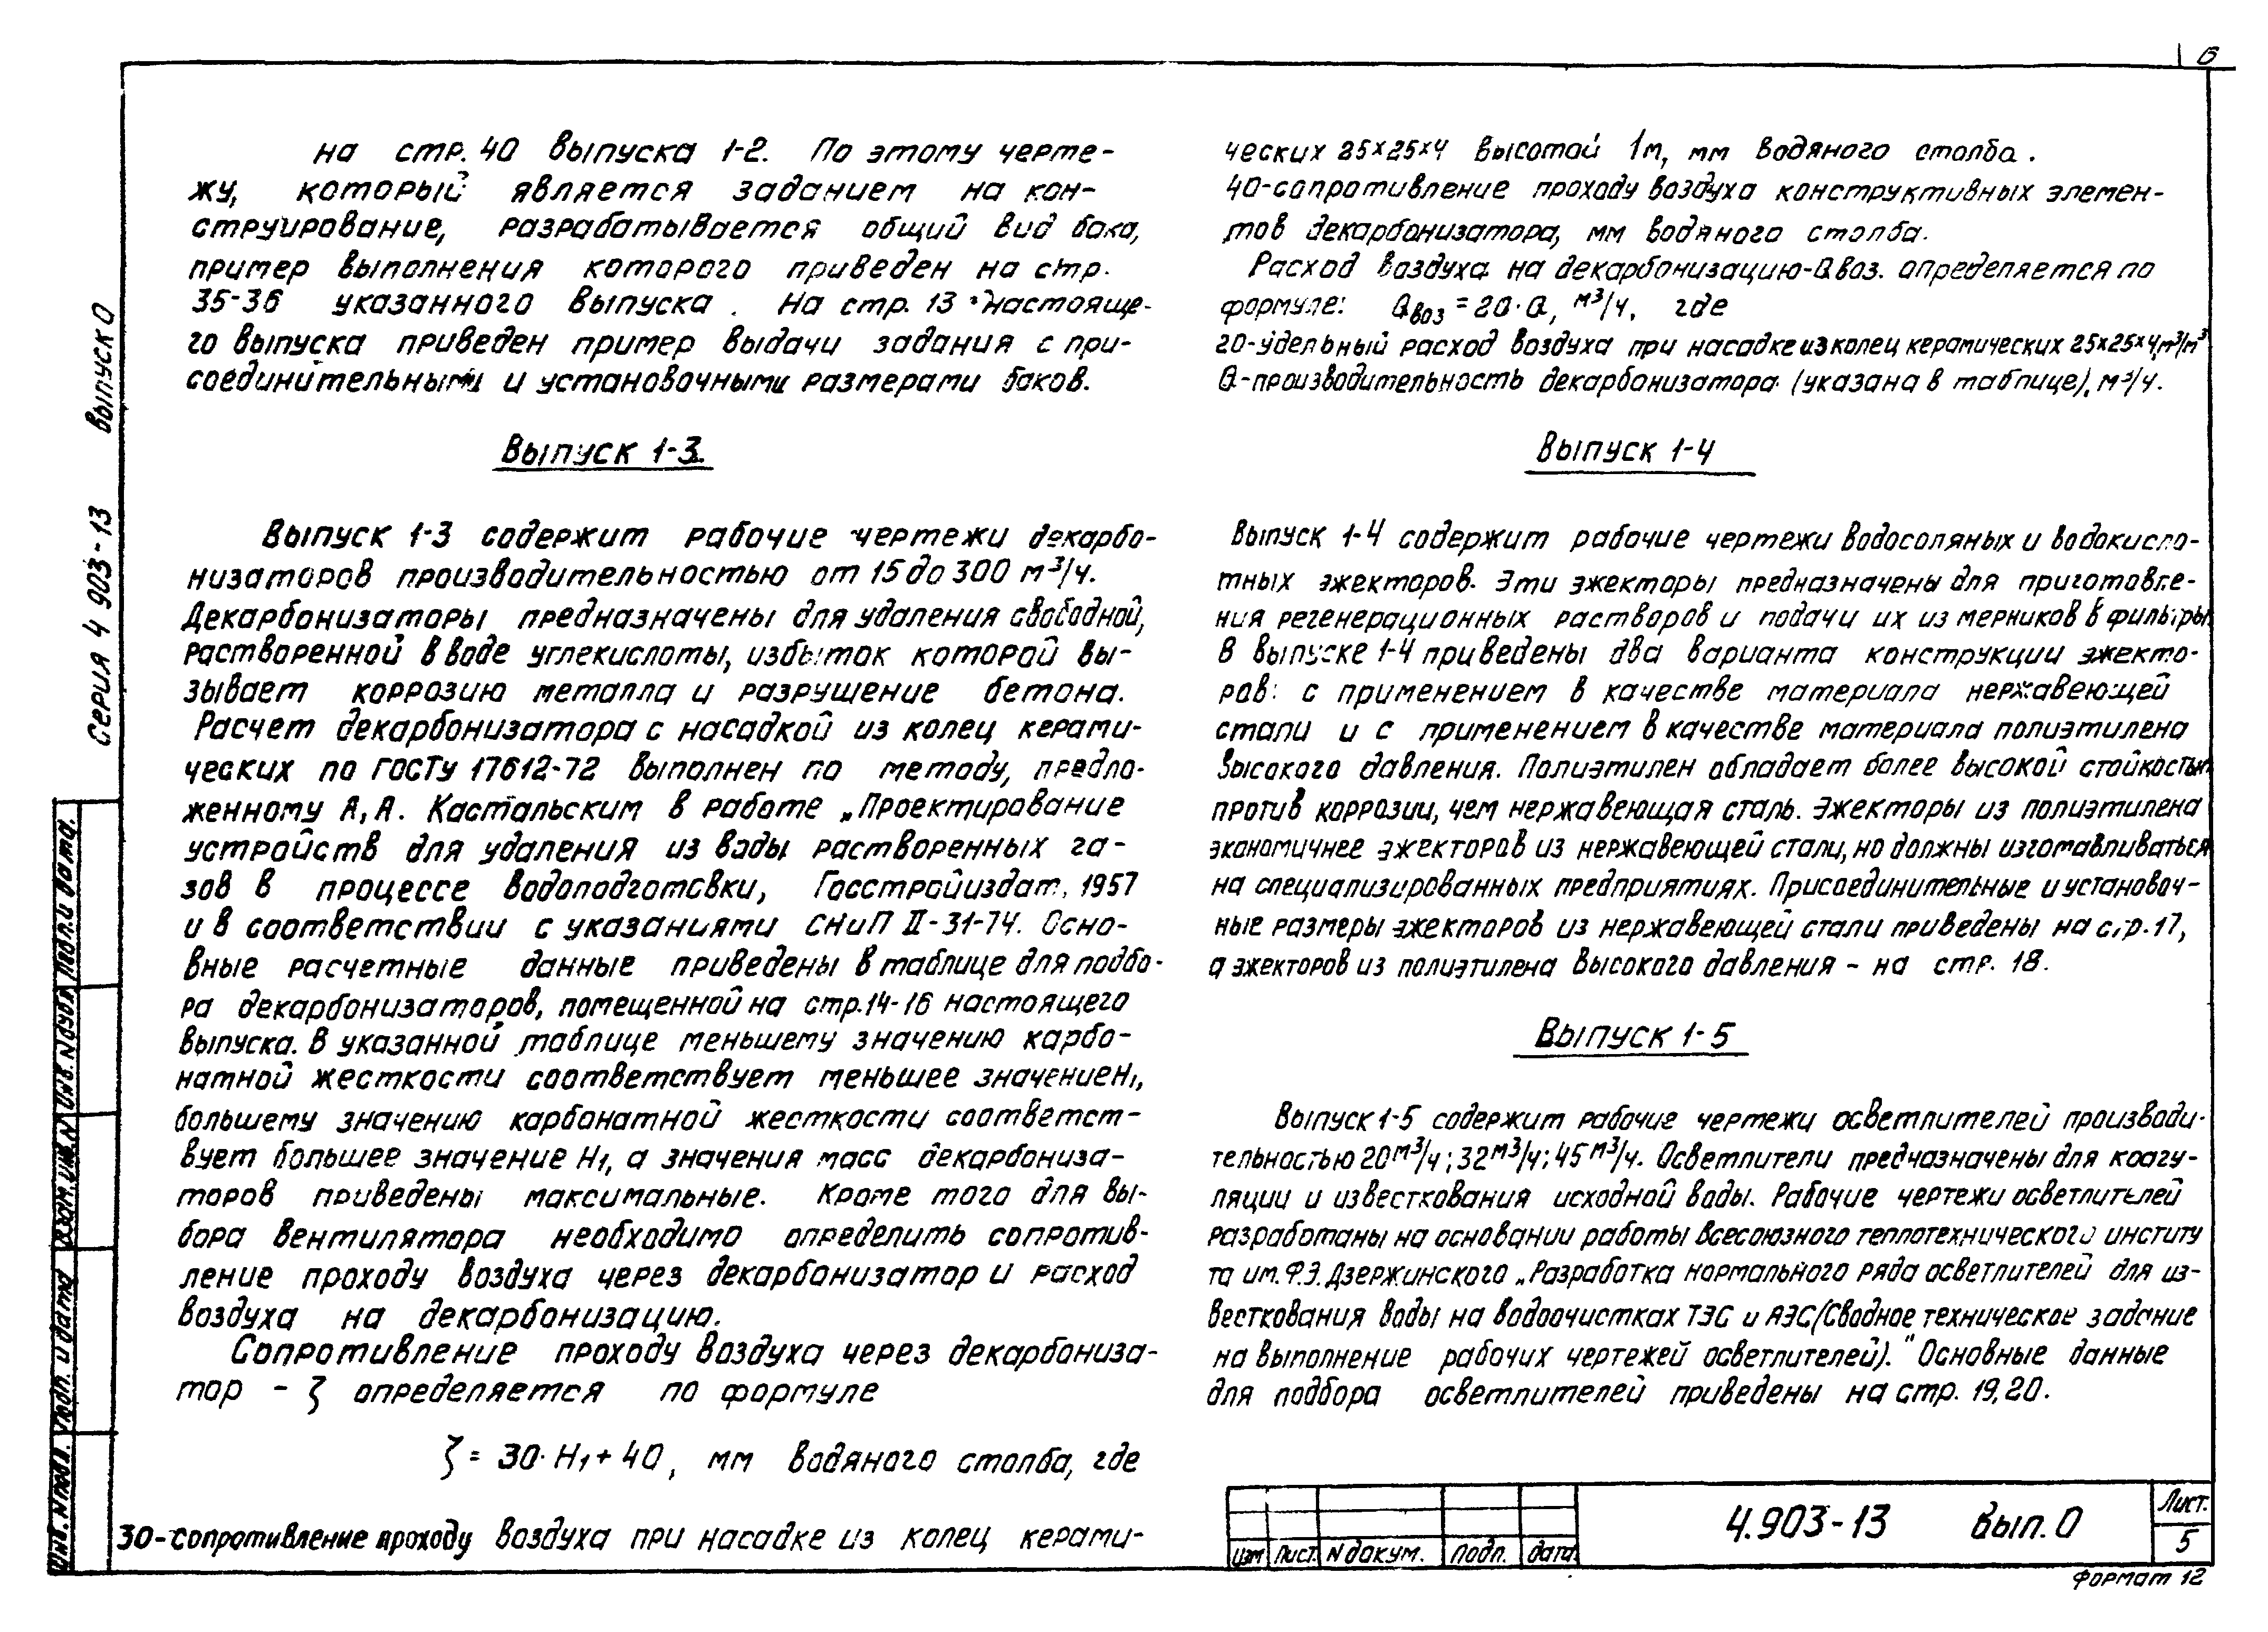 6
на стр. 40 выпуска 1-2. По этому черте-
жу, который является заданием на кон-
струирование, разрабатывается общий вид бака,
пример выполнения которого приведен на стр.
35-36 указанного выпуска. На стр. 13 настояще-
го выпуска приведен пример выдачи задания с при-
соединительными и установочными размерами баков.
Выпуск 1-3.
Выпуск 1-3 содержит рабочие чертежи декарбо-
низаторов производительностью от 15 до 300 м³/ч.
Декарбонизаторы предназначены для удаления свободной,
растворенной в воде углекислоты, избыток которой вы-
зывает коррозию металла и разрушение бетона.
Расчет декарбонизатора с насадкой из колец керами-
ческих по ГОСТу 17612-72 выполнен по методу, предло-
женному А.А. Кастальским в работе „Проектирование
устройств для удаления из воды растворенных га-
зов в процессе водоподготовки, Госстройиздат, 1957
и в соответствии с указаниями СНиП II-31-74. Осно-
вные расчетные данные приведены в таблице для подбо-
ра декарбонизаторов, помещенной на стр. 14-16 настоящего
выпуска. В указанной таблице меньшему значению карбо-
натной жесткости соответствует меньшее значение H₁,
большему значению карбонатной жесткости соответст-
вует большее значение H₁, а значения масс декарбониза-
торов приведены максимальные. Кроме того для вы-
бора вентилятора необходимо определить сопротив-
ление проходу воздуха через декарбонизатор и расход
воздуха на декарбонизацию.
Сопротивление проходу воздуха через декарбониза-
тор - ζ определяется по формуле
ζ = 30·H₁ + 40, мм водяного столба, где
30-сопротивление проходу воздуха при насадке из колец керами-
ческих 25×25×4 высотой 1м, мм водяного столба.
40-сопротивление проходу воздуха конструктивных элемен-
тов декарбонизатора, мм водяного столба.
Расход воздуха на декарбонизацию-Qвоз. определяется по
формуле: Qвоз = 20·Q, м³/ч, где
20-удельный расход воздуха при насадке из колец керамических 25×25×4, м³/м³
Q-производительность декарбонизатора (указана в таблице), м³/ч.
Выпуск 1-4
Выпуск 1-4 содержит рабочие чертежи водосоляных и водокисло-
тных эжекторов. Эти эжекторы предназначены для приготовле-
ния регенерационных растворов и подачи их из мерников в фильтры
В выпуске 1-4 приведены два варианта конструкции эжекто-
ров: с применением в качестве материала нержавеющей
стали и с применением в качестве материала полиэтилена
высокого давления. Полиэтилен обладает более высокой стойкостью
против коррозии, чем нержавеющая сталь. Эжекторы из полиэтилена
экономичнее эжекторов из нержавеющей стали, но должны изготавливаться
на специализированных предприятиях. Присоединительные и установоч-
ные размеры эжекторов из нержавеющей стали приведены на стр. 17,
а эжекторов из полиэтилена высокого давления - на стр. 18.
Выпуск 1-5
Выпуск 1-5 содержит рабочие чертежи осветлителей производи-
тельностью 20м³/ч; 32м³/ч; 45м³/ч. Осветлители предназначены для коагу-
ляции и известкования исходной воды. Рабочие чертежи осветлителей
разработаны на основании работы Всесоюзного теплотехнического институ
та им. Ф.Э. Дзержинского „Разработка нормального ряда осветлителей для из-
весткования воды на водоочистках ТЭС и АЭС (Сводное техническое задание
на выполнение рабочих чертежей осветлителей)." Основные данные
для подбора осветлителей приведены на стр. 19, 20.
Серия 4 903-13 выпуск 0
Инв. N подл. Подп. и дата Взам. инв. N Инв. N дубл Подп. и дата.
Изм Лист N докум. Подп. дата
4.903-13 вып. 0
Лист.
5
Формат 12